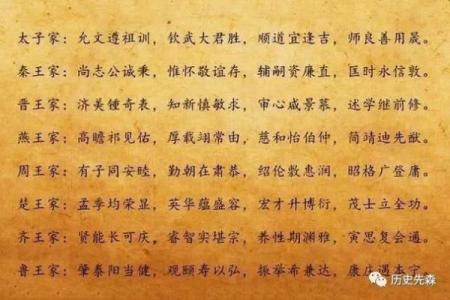 太子家：允文遵祖训，钦武大君胜，顺道宜逢吉，师良善用晟。
秦王家：尚志公诚秉，惟怀敬谊存，辅嗣资廉直，匡时永信敦。
晋王家：济美锺奇表，知新慎敏求，审心咸景慕，述学继前修。
燕王家：高瞻祁见佑，厚载翊常由，慈和怡伯仲，简靖迪先猷。
周王家：有子同安睦，勤朝在肃恭，绍伦敷惠润，昭格广登庸。
楚王家：孟季均荣显，英华蕴盛容，宏才升博衍，茂士立全功。
齐王家：贤能长可庆，睿智实堪宗，养性期渊雅，寅思复会通。
鲁王家：肇泰阳当健，观颐寿以弘，振举希兼达，康庄遇本宁
历史先森